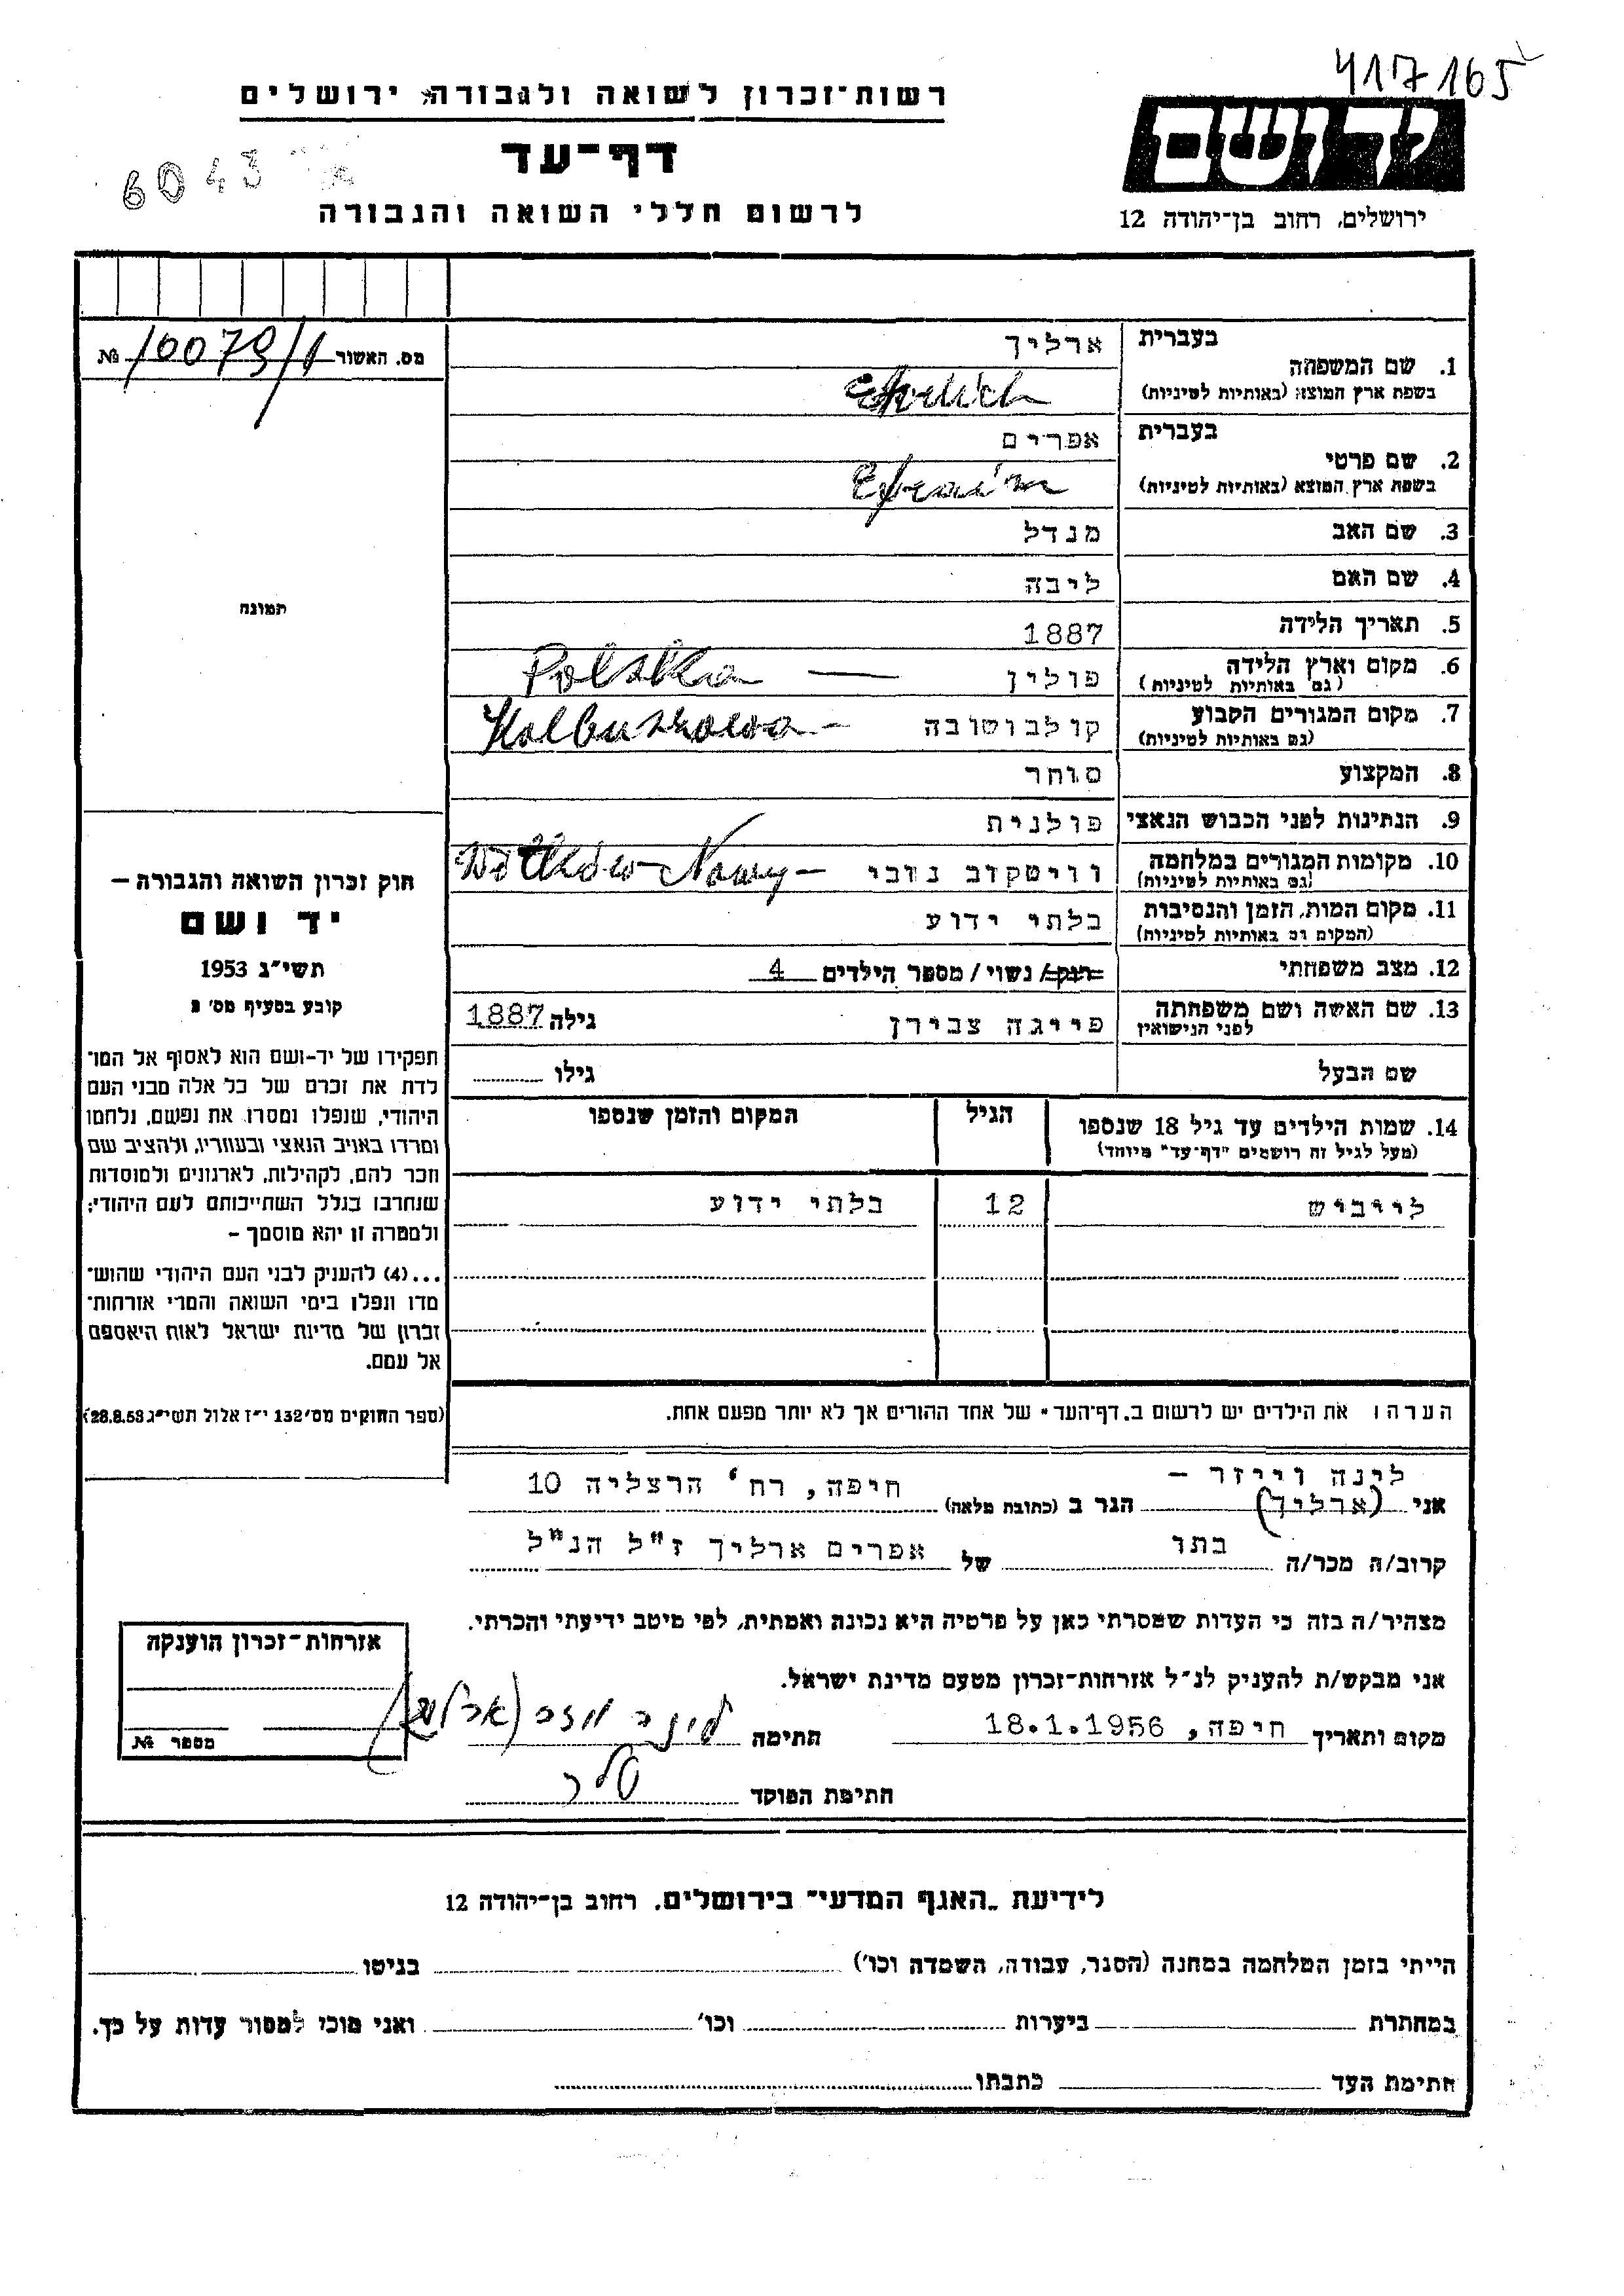 417165
רשות־זכרון לשואה ולגבורה, ירושלים
דף־עד
6043
לרשום חללי השואה והגבורה
יד ושם
ירושלים, רחוב בן־יהודה 12
מס. האשור 10079/1 №
תמונה
חוק זכרון השואה והגבורה –
יד ושם
תשי״ג 1953
קובע בסעיף מס׳ 2
תפקידו של יד-ושם הוא לאסוף אל המו־
לדת את זכרם של כל אלה מבני העם
היהודי, שנפלו ומסרו את נפשם, נלחמו
ומרדו באויב הנאצי ובעוזריו, ולהציב שם
וזכר להם, לקהילות, לארגונים ולמוסדות
שנחרבו בגלל השתייכותם לעם היהודי;
ולמטרה זו יהא מוסמך –
...(4) להעניק לבני העם היהודי שהוש־
מדו ונפלו בימי השואה והמרי אזרחות־
זכרון של מדינת ישראל לאות היאספם
אל עמם.
(ספר החוקים מס׳ 132 י״ז אלול תשי״ג 28.8.53)
1. שם המשפחה בעברית ארליך
בשפת ארץ המוצא (באותיות לטיניות) Ehrlich
2. שם פרטי בעברית אפרים
בשפת ארץ המוצא (באותיות לטיניות) Efraim
3. שם האב מנדל
4. שם האם ליבה
5. תאריך הלידה 1887
6. מקום וארץ הלידה פולין — Polska
(גם באותיות לטיניות)
7. מקום המגורים הקבוע קולבוסובה – Kolbuszowa
(גם באותיות לטיניות)
8. המקצוע סוחר
9. הנתינות לפני הכבוש הנאצי פולנית
10. מקומות המגורים במלחמה וויטקוב נובי – Nowy
(גם באותיות לטיניות)
11. מקום המות, הזמן והנסיבות בלתי ידוע
(המקום גם באותיות לטיניות)
12. מצב משפחתי רווק/ נשוי/ מספר הילדים 4
13. שם האשה ושם משפחתה פייגה צבירן גילה 1887
לפני הנישואין
שם הבעל גילו
14. שמות הילדים עד גיל 18 שנספו הגיל המקום והזמן שנספו
(מעל לגיל זה רושמים "דף־עד" מיוחד)
לייביש 12 בלתי ידוע
הערה: את הילדים יש לרשום ב„דף־העד" של אחד ההורים אך לא יותר מפעם אחת.
לינה וייזר –
אני (ארליך) הגר ב (כתובת מלאה) חיפה, רח' הרצליה 10
קרוב/ה מכר/ה בתו של אפרים ארליך ז"ל הנ"ל
מצהיר/ה בזה כי העדות שמסרתי כאן על פרטיה היא נכונה ואמתית, לפי מיטב ידיעתי והכרתי.
אני מבקש/ת להעניק לנ״ל אזרחות־זכרון מטעם מדינת ישראל.
מקום ותאריך חיפה, 18.1.1956 חתימה
חתימת הפוקד
אזרחות־זכרון הוענקה
מספר №
לידיעת „האגף המדעי" בירושלים. רחוב בן־יהודה 12
הייתי בזמן המלחמה במחנה (הסגר, עבודה, השמדה וכו׳) בגיטו
במחתרת ביערות וכו׳ ואני מוכן למסור עדות על כך.
חתימת העד כתבתו